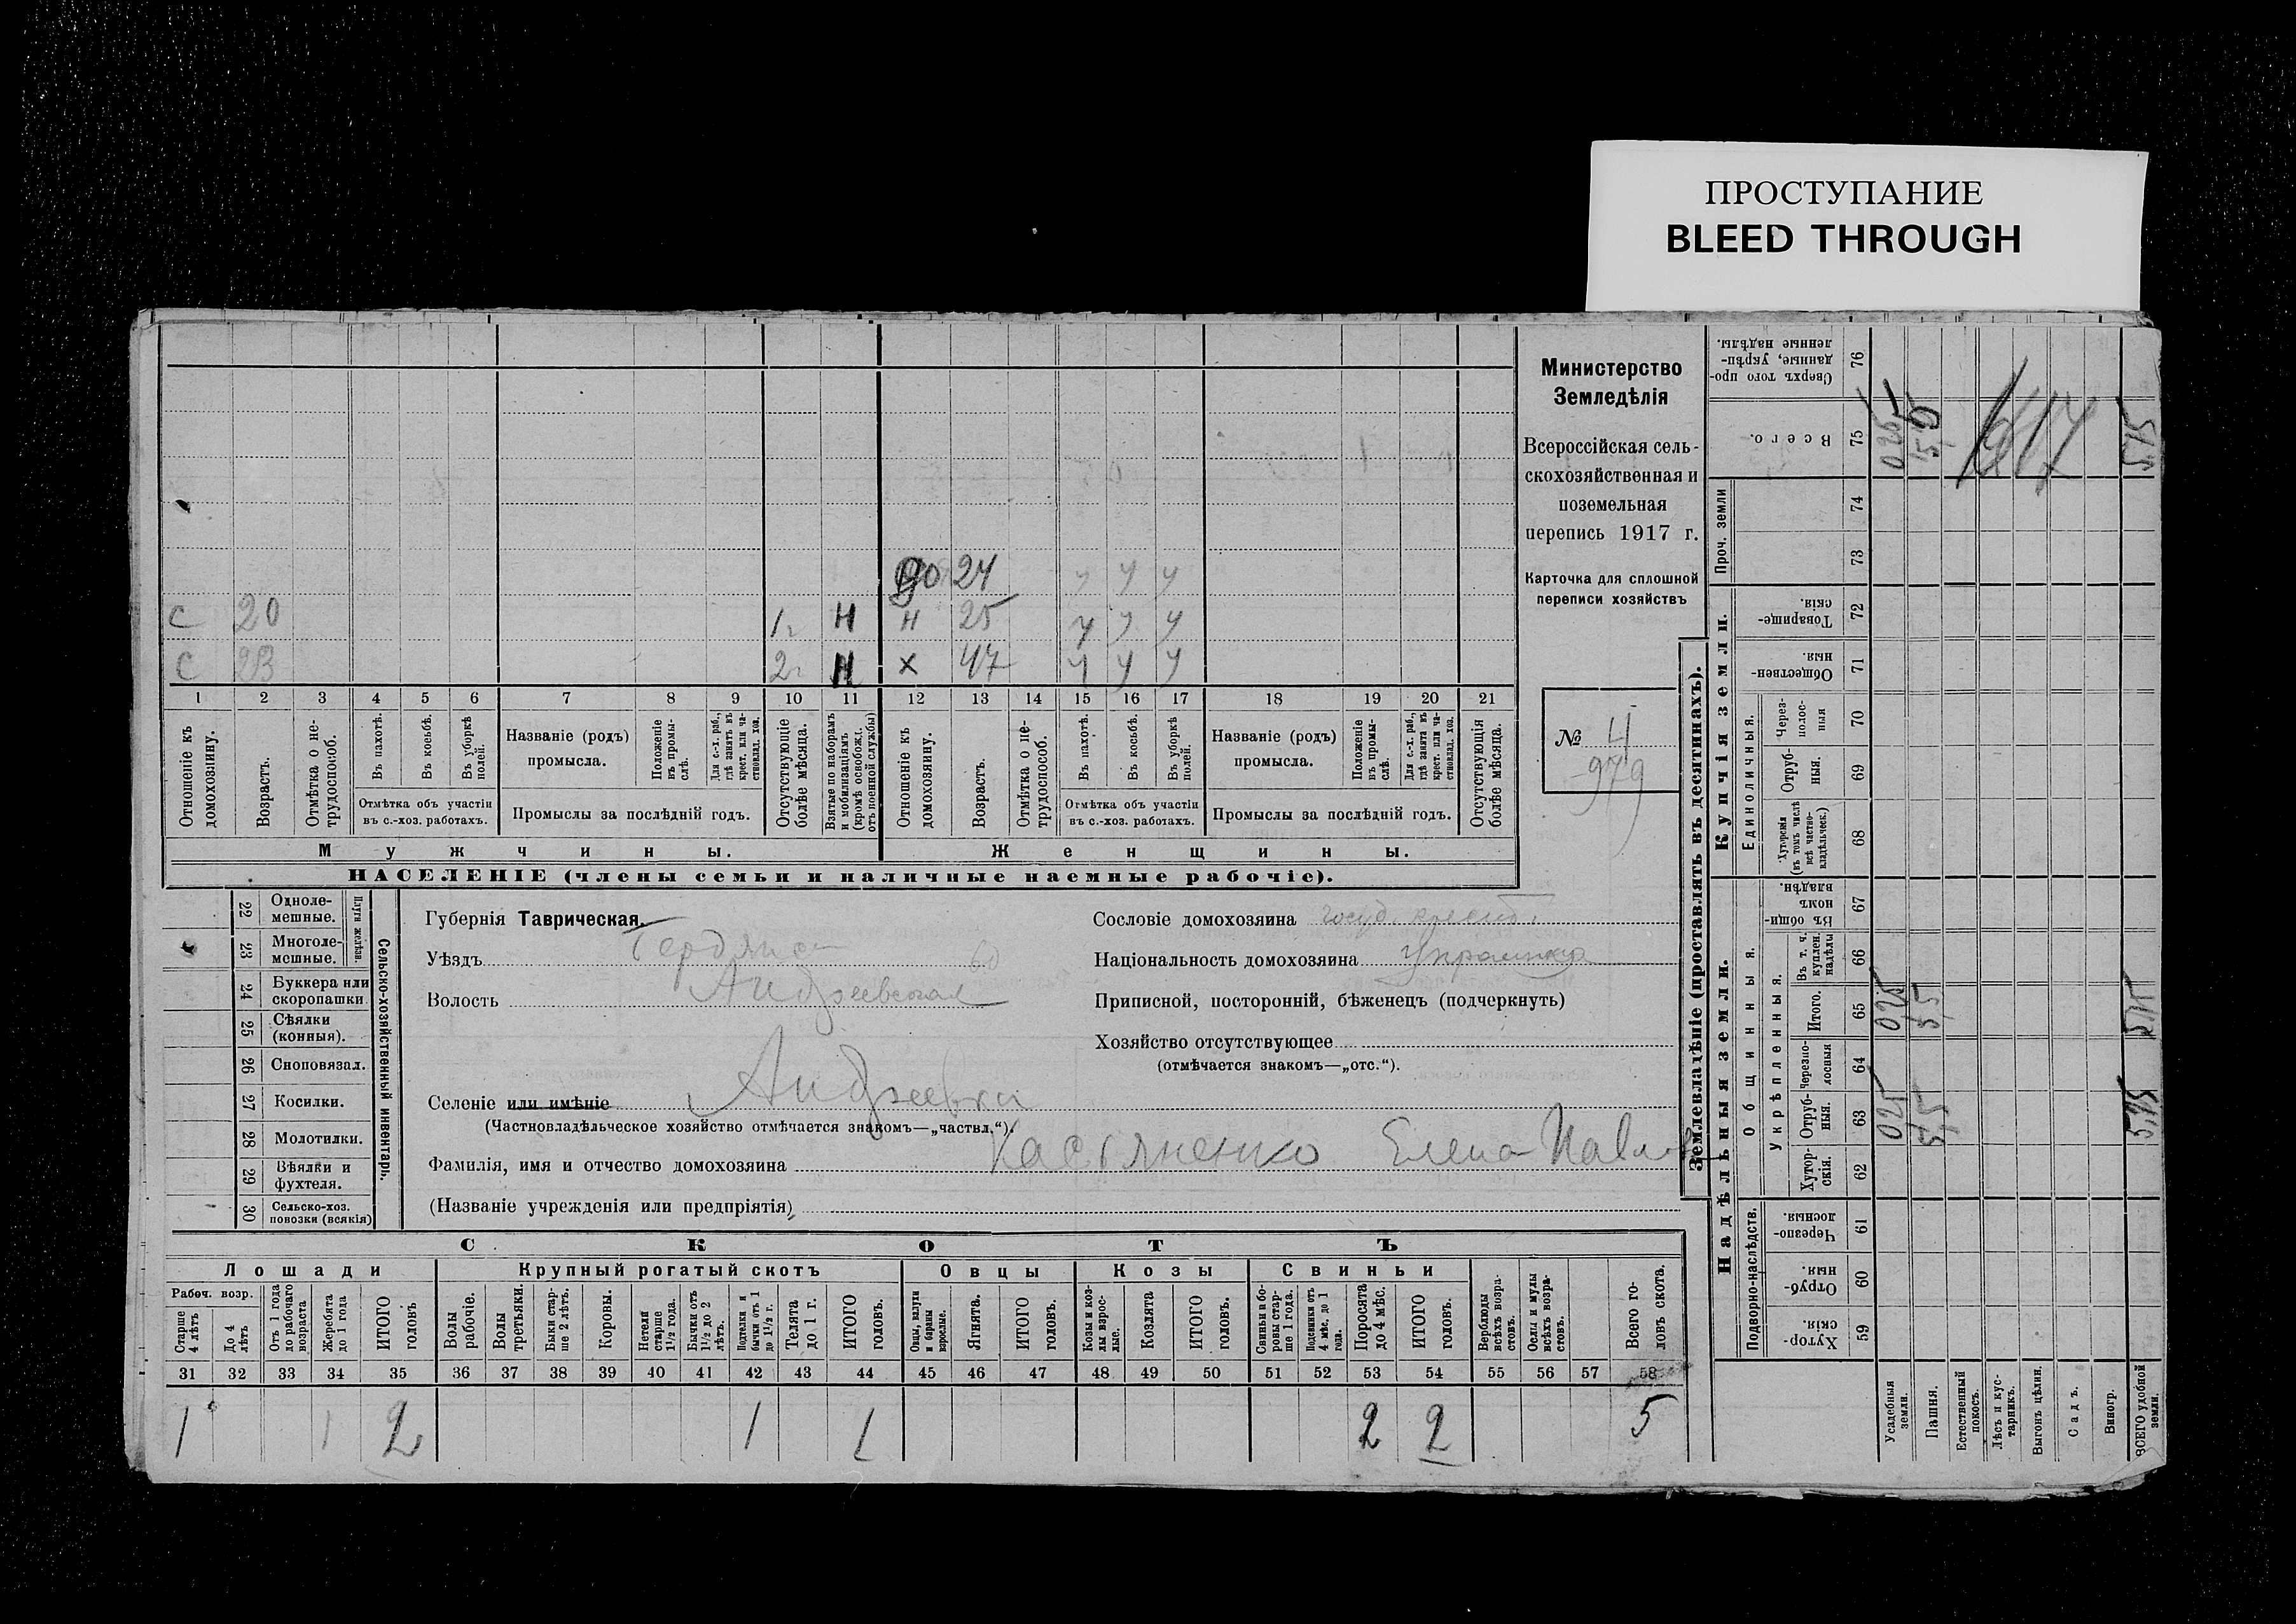 ПРОСТУПАНИЕ
BLEED THROUGH
Министерство
Земледѣлія
Всероссійская сель-
скохозяйственная и
поземельная
перепись 1917 г.
Карточка для сплошной
переписи хозяйствъ
№ 4
979
до 24 у у у
с 20 1 г Н н 25 у у у
с 23 2 г Н х 47 у у у
1 2 3 4 5 6 7 8 9 10 11 12 13 14 15 16 17 18 19 20 21
Отношеніе къ домохозяину.
Возрастъ.
Отмѣтка о не-трудоспособ.
Въ пахотѣ.
Въ косьбѣ.
Въ уборкѣ полей.
Отмѣтка объ участіи
въ с.-хоз. работахъ.
Названіе (родъ)
промысла.
Положеніе въ промы-слѣ.
Для с.-х. раб., гдѣ занятъ въ крест. или ча-стновлад. хоз.
Промыслы за послѣдній годъ.
Отсутствующіе болѣе мѣсяца.
Взятые по наборамъ и мобилизаціямъ (кромѣ освобожд. отъ военной службы)
Отношеніе къ домохозяину.
Возрастъ.
Отмѣтка о не-трудоспособ.
Въ пахотѣ.
Въ косьбѣ.
Въ уборкѣ полей.
Отмѣтка объ участіи
въ с.-хоз. работахъ.
Названіе (родъ)
промысла.
Положеніе въ промы-слѣ.
Для с.-х. раб., гдѣ занята въ крест. или ча-стновлад. хоз.
Промыслы за послѣдній годъ.
Отсутствующія болѣе мѣсяца.
Мужчины.
Женщины.
НАСЕЛЕНІЕ (члены семьи и наличные наемные рабочіе).
22 Одноле-мешные.
23 Многоле-мешные.
Плуги желѣзн.
24 Буккера или скоропашки.
25 Сѣялки (конныя).
26 Сноповязал.
27 Косилки.
28 Молотилки.
29 Вѣялки и фухтеля.
30 Сельско-хоз. повозки (всякія)
Сельско-хозяйственный инвентарь.
Губернія Таврическая.
Уѣздъ Бердянс
Волость Андреевская 60
Селеніе или имѣніе Андреевка
(Частновладѣльческое хозяйство отмѣчается знакомъ—„частвл.“)
Фамилія, имя и отчество домохозяина Касьяненко Елена Павл
(Названіе учрежденія или предпріятія)
Сословіе домохозяина госуд. крест.
Національность домохозяина Украинка
Приписной, посторонній, бѣженецъ (подчеркнуть)
Хозяйство отсутствующее
(отмѣчается знакомъ—„отс.“).
СКОТЪ
Лошади
Крупный рогатый скотъ
Овцы
Козы
Свиньи
Рабоч. возр.
Старше 4 лѣтъ
До 4 лѣтъ
Отъ 1 года до рабочаго возраста
Жеребята до 1 года
ИТОГО головъ
Волы рабочіе.
Волы третьяки.
Быки стар-ше 2 лѣтъ.
Коровы.
Нетели старше 1½ года.
Бычки отъ 1½ до 2 лѣтъ.
Подтелки и бычки отъ 1 до 1½ г.
Телята до 1 г.
ИТОГО головъ.
Овцы, валухи и бараны взрослые.
Ягнята.
ИТОГО головъ.
Козы и коз-лы взрос-лые.
Козлята
ИТОГО головъ.
Свиньи и бо-ровы стар-ше 1 года.
Подсвинки отъ 4 мѣс. до 1 года.
Поросята до 4 мѣс.
ИТОГО головъ.
Верблюды всѣхъ возра-стовъ.
Ослы и мулы всѣхъ возра-стовъ.
Всего го-ловъ скота.
31 32 33 34 35 36 37 38 39 40 41 42 43 44 45 46 47 48 49 50 51 52 53 54 55 56 57 58
1 1 2 1 1 2 2 5
Землевладѣніе (проставлять въ десятинахъ).
Надѣльныя земли.
Купчія земли.
Проч. земли
Подворно-наслѣдств.
Общинныя.
Укрѣпленныя.
Единоличныя.
Хутор-скія. 59
Отруб-ныя. 60
Черезпо-лосныя. 61
Хутор-скія. 62
Отруб-ныя. 63
Черезпо-лосныя 64
Итого. 65
Въ т. ч. куплен. надѣлы 66
Въ общин-номъ владѣн. 67
Хуторскія (въ томъ числѣ всѣ частно-владѣльческ.) 68
Отруб-ныя. 69
Через-полос-ныя 70
Обществен-ныя. 71
Товарище-скія. 72
73
74
Всего. 75
Сверхъ того про-данные, укрѣп-ленные надѣлы. 76
Усадебныя земли. 025 025 025
Пашня. 5,5 5,5 5,5
Естественный покосъ.
Лѣсъ и кус-тарникъ.
Выгонъ цѣлин.
Садъ.
Виногр.
ВСЕГО удобной земли. 5,75 5,75 5,75